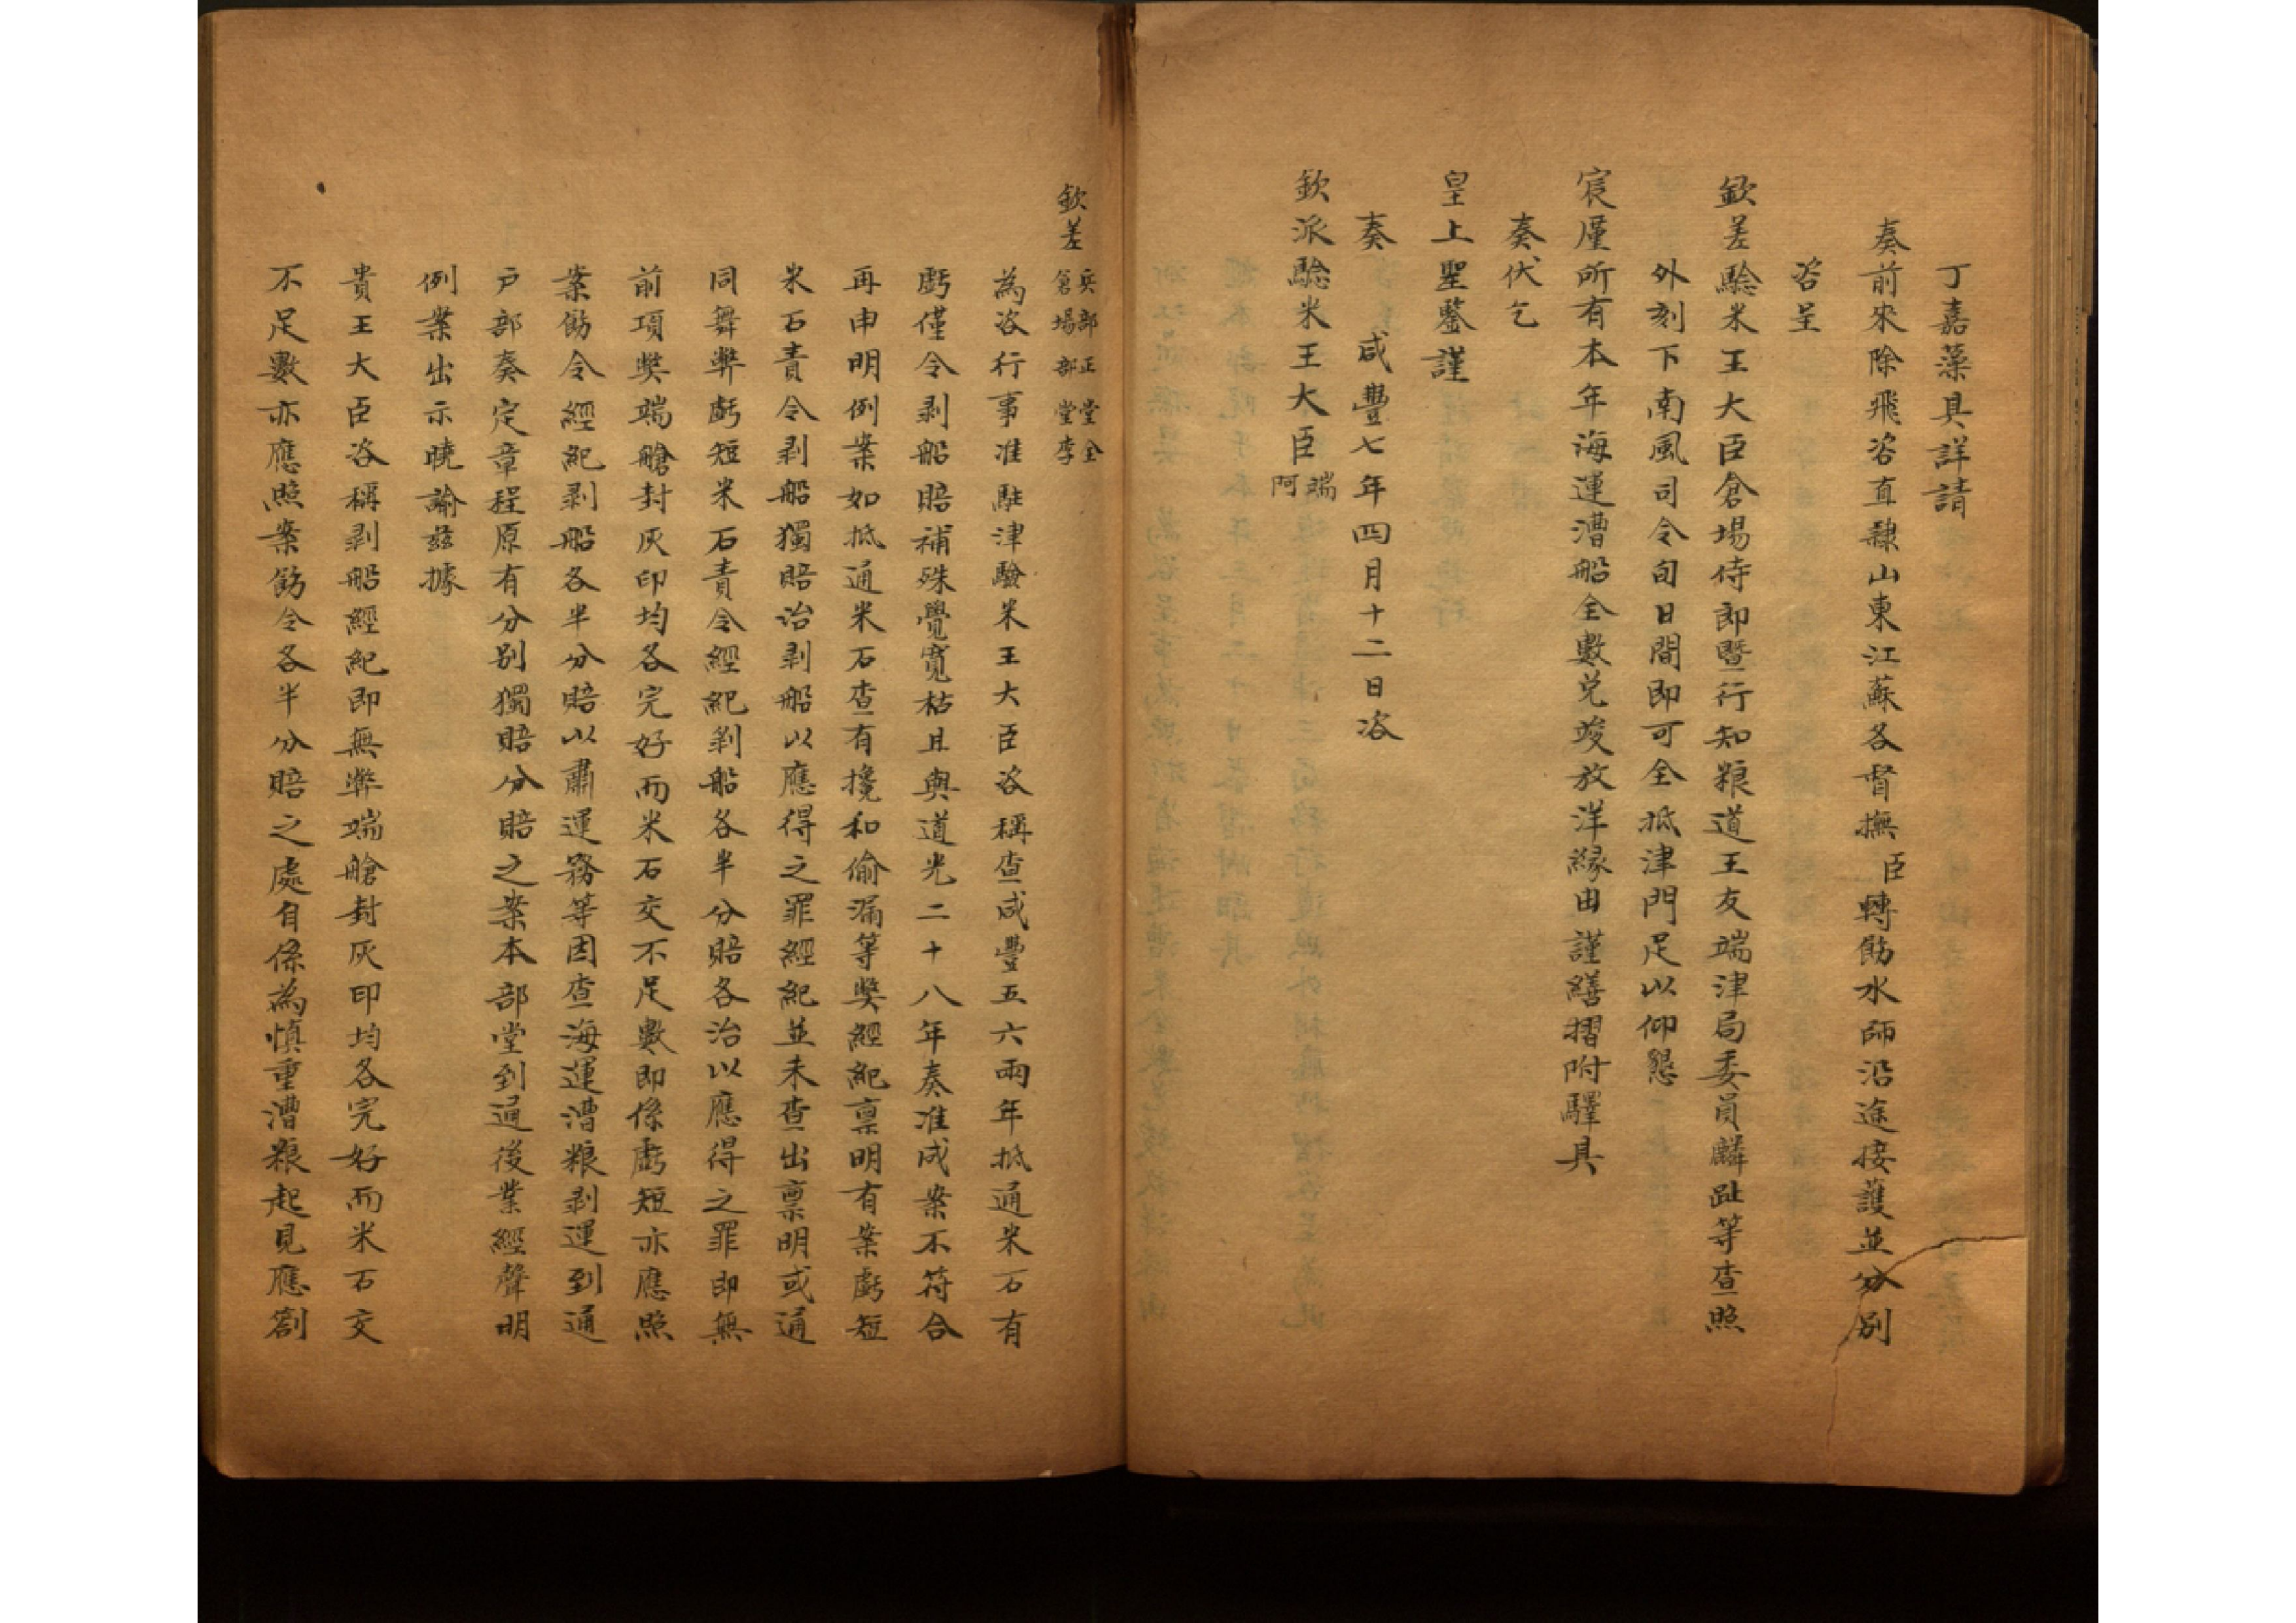 丁嘉藻具詳請
奏前來除飛咨直隸山東江蘇各督撫臣轉飭水師沿途接護並分別
咨呈
欽差驗米王大臣倉場侍郎暨行知粮道王友端津局委員麟趾等查照
外刻下南風司令旬日間即可全抵津門足以仰慰
宸厪所有本年海運漕船全數兌竣放洋緣由謹繕摺附驛具
奏伏乞
皇上聖鑒謹
奏 咸豐七年四月十二日咨
欽派驗米王大臣端阿
欽差兵部正堂全倉場部堂李
為咨行事准駐津驗米王大臣咨稱查咸豐五六兩年抵通米石有
虧僅令剥船賠補殊覺寬枯且與道光二十八年奏准成案不符合
再申明例案如抵通米石查有攙和偷漏等獘經紀禀明有案虧短
米石責令剥船獨賠治剥船以應得之罪經紀並未查出禀明或通
同舞弊虧短米石責令經紀剥船各半分賠各治以應得之罪即無
前項獘端艙封灰印均各完好而米石交不足數即係虧短亦應照
案飭令經紀剥船各半分賠以肅運務等因查海運漕粮剥運到通
戶部奏定章程原有分别獨賠分賠之案本部堂到通後業經聲明
例案出示曉諭兹據
貴王大臣咨稱剥船經紀即無弊端艙封灰印均各完好而米石交
不足數亦應照案飭令各半分賠之處自係為慎重漕粮起見應劄